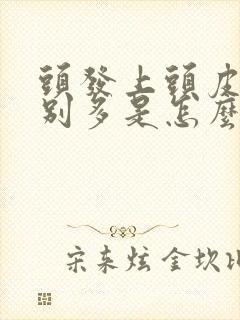 頭發上頭皮
別多是怎麼
宋來炫 金坎比